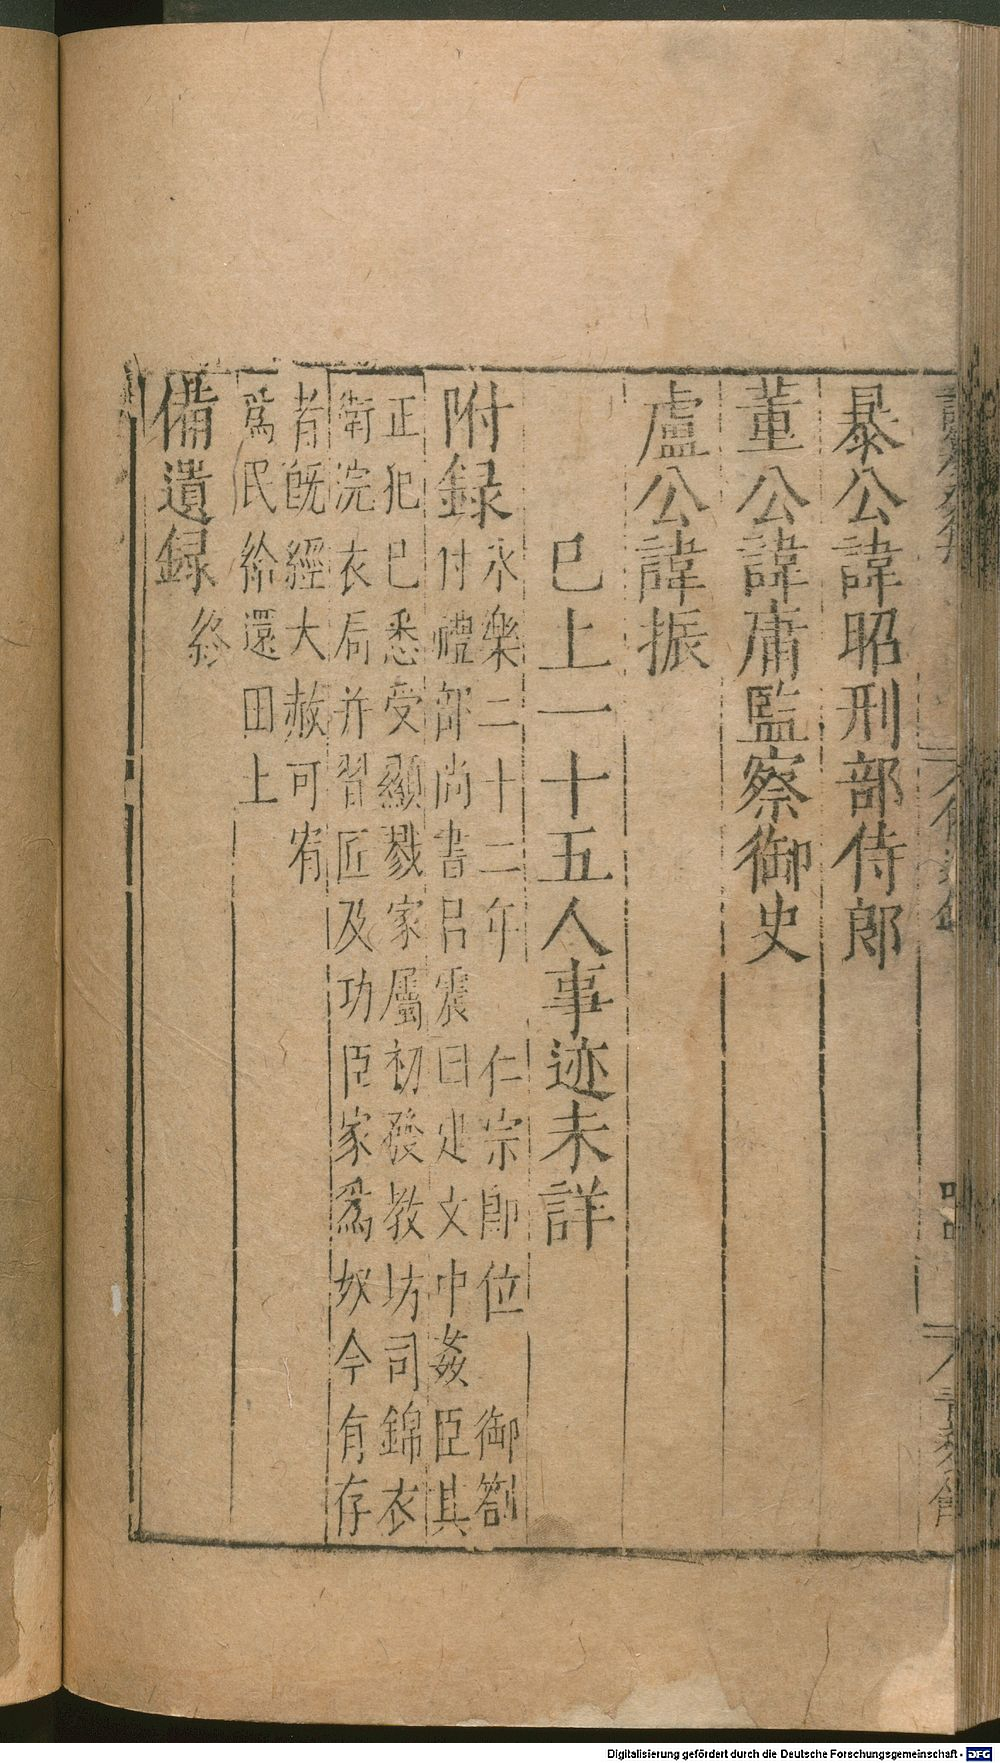 暴公諱昭刑部侍郎
董公諱庸監察御史
盧公諱振
已上一十五人事迹未詳
附錄
永樂二十二年 仁宗即位 御劄
付禮部尚書呂震曰建文中姦臣其
正犯已悉受顯戮家屬初發教坊司錦衣
衛浣衣局并習匠及功臣家爲奴今有存
者既經大赦可宥
爲民給還田土
備遺録 終
Digitalisierung gefördert durch die Deutsche Forschungsgemeinschaft - DFG